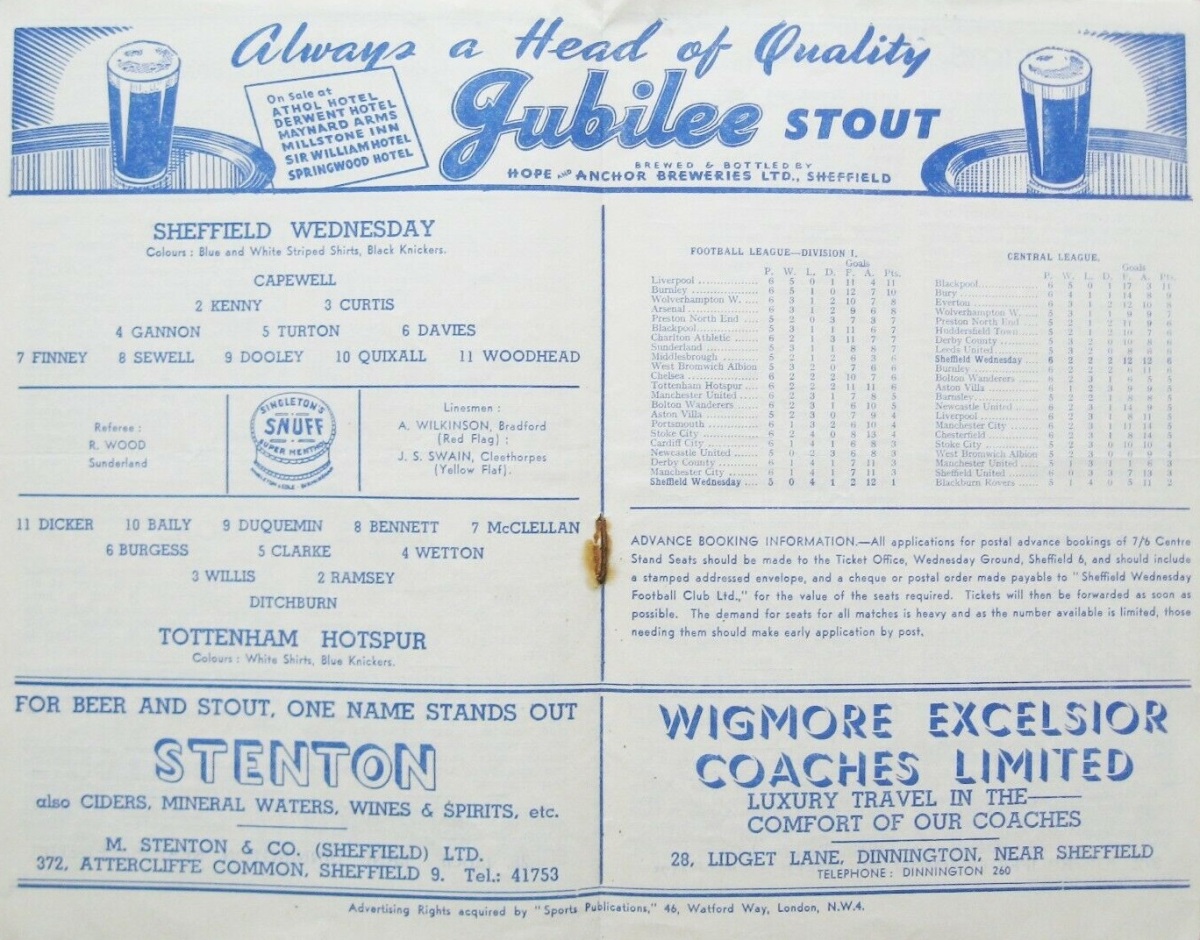 Always a Head of Quality
On Sale at
ATHOL HOTEL
DERWENT HOTEL
MAYNARD ARMS
MILLSTONE INN
SIR WILLIAM HOTEL
SPRINGWOOD HOTEL
Jubilee STOUT
BREWED & BOTTLED BY
HOPE AND ANCHOR BREWERIES LTD., SHEFFIELD
SHEFFIELD WEDNESDAY
Colours : Blue and White Striped Shirts, Black Knickers.
CAPEWELL
2 KENNY 3 CURTIS
4 GANNON 5 TURTON 6 DAVIES
7 FINNEY 8 SEWELL 9 DOOLEY 10 QUIXALL 11 WOODHEAD
Referee :
R. WOOD
Sunderland
SINGLETON'S
SNUFF
SUPER MENTHOL
Linesmen :
A. WILKINSON, Bradford
(Red Flag) :
J. S. SWAIN, Cleethorpes
(Yellow Flaf).
11 DICKER 10 BAILY 9 DUQUEMIN 8 BENNETT 7 McCLELLAN
6 BURGESS 5 CLARKE 4 WETTON
3 WILLIS 2 RAMSEY
DITCHBURN
TOTTENHAM HOTSPUR
Colours : White Shirts, Blue Knickers.
FOOTBALL LEAGUE—DIVISION I.
Goals
P. W. L. D. F. A. Pts.
Liverpool 6 5 0 1 11 4 11
Burnley 6 5 1 0 12 7 10
Wolverhampton W. 6 3 1 2 10 7 8
Arsenal 6 3 1 2 9 6 8
Preston North End 5 2 0 3 7 3 7
Blackpool 5 3 1 1 11 6 7
Charlton Athletic 6 2 1 3 11 7 7
Sunderland 5 3 1 1 8 8 7
Middlesbrough 5 2 1 2 6 3 6
West Bromwich Albion 5 3 2 0 7 6 6
Chelsea 6 2 2 2 10 7 6
Tottenham Hotspur 6 2 2 2 11 11 6
Manchester United 6 2 3 1 7 8 5
Bolton Wanderers 6 2 3 1 6 10 5
Aston Villa 5 2 3 0 7 9 4
Portsmouth 6 1 3 2 6 10 4
Stoke City 6 2 4 0 8 13 4
Cardiff City 6 1 4 1 6 8 3
Newcastle United 5 0 2 3 6 8 3
Derby County 6 1 4 1 7 11 3
Manchester City 6 1 4 1 7 11 3
Sheffield Wednesday 5 0 4 1 2 12 1
CENTRAL LEAGUE.
Goals
P. W. L. D. F. A. Pts.
Blackpool
Bury
Everton
Wolverhampton W.
Preston North End
Huddersfield Town
Derby County
Leeds United
Sheffield Wednesday 6 2 2 2 12 12 6
Burnley
Bolton Wanderers
Aston Villa
Barnsley
Newcastle United
Liverpool
Manchester City
Chesterfield
Stoke City
West Bromwich Albion
Manchester United
Sheffield United
Blackburn Rovers
ADVANCE BOOKING INFORMATION.—All applications for postal advance bookings of 7/6 Centre
Stand Seats should be made to the Ticket Office, Wednesday Ground, Sheffield 6, and should include
a stamped addressed envelope, and a cheque or postal order made payable to " Sheffield Wednesday
Football Club Ltd.," for the value of the seats required. Tickets will then be forwarded as soon as
possible. The demand for seats for all matches is heavy and as the number available is limited, those
needing them should make early application by post.
FOR BEER AND STOUT, ONE NAME STANDS OUT
STENTON
also CIDERS, MINERAL WATERS, WINES & SPIRITS, etc.
M. STENTON & CO. (SHEFFIELD) LTD.
372, ATTERCLIFFE COMMON, SHEFFIELD 9. Tel.: 41753
WIGMORE EXCELSIOR
COACHES LIMITED
LUXURY TRAVEL IN THE—
COMFORT OF OUR COACHES
28, LIDGET LANE, DINNINGTON, NEAR SHEFFIELD
TELEPHONE : DINNINGTON 260
Advertising Rights acquired by "Sports Publications," 46, Watford Way, London, N.W.4.